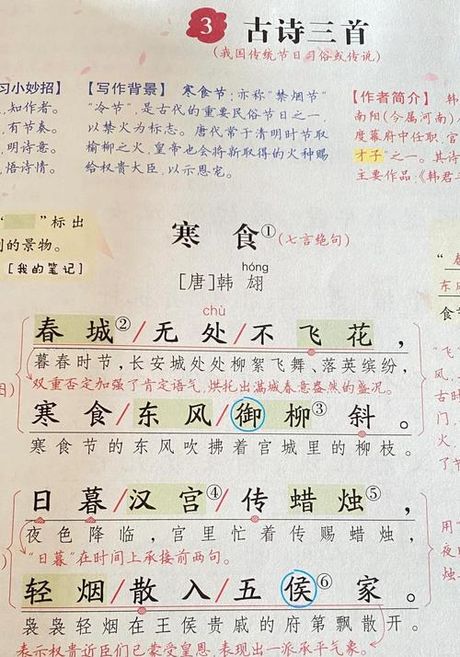 3 古诗三首
(我国传统节日习俗或传说)
习小妙招】
,知作者。
,有节奏。
,明诗意。
,悟诗情。
【写作背景】 寒食节:亦称“禁烟节”
“冷节”,是古代的重要民俗节日之一,
以禁火为标志。唐代常于清明时节取
榆柳之火,皇帝也会将新取得的火种赐
给权贵大臣,以示恩宠。
【作者简介】 韩
南阳(今属河南)
度幕府中任职,官
才子”之一。其诗
主要作品:《韩君
“ ”标出
的景物。
[我的笔记]
寒 食①(七言绝句)
hóng
[唐]韩 翃
chù
春城②/无处/不飞花,
暮春时节,长安城处处柳絮飞舞、落英缤纷,
双重否定加强了肯定语气,烘托出满城春意盎然的盛况。
寒食/东风/御柳③斜。
寒食节的东风吹拂着宫城里的柳枝。
日暮/汉宫④/传蜡烛⑤,
夜色降临,宫里忙着传赐蜡烛,
“日暮”在时间上承接前两句。
轻烟/散入/五侯⑥家。
袅袅轻烟在王侯贵戚的府第飘散开。
表示权贵近臣们已蒙受皇恩,表现出一派承平气象。